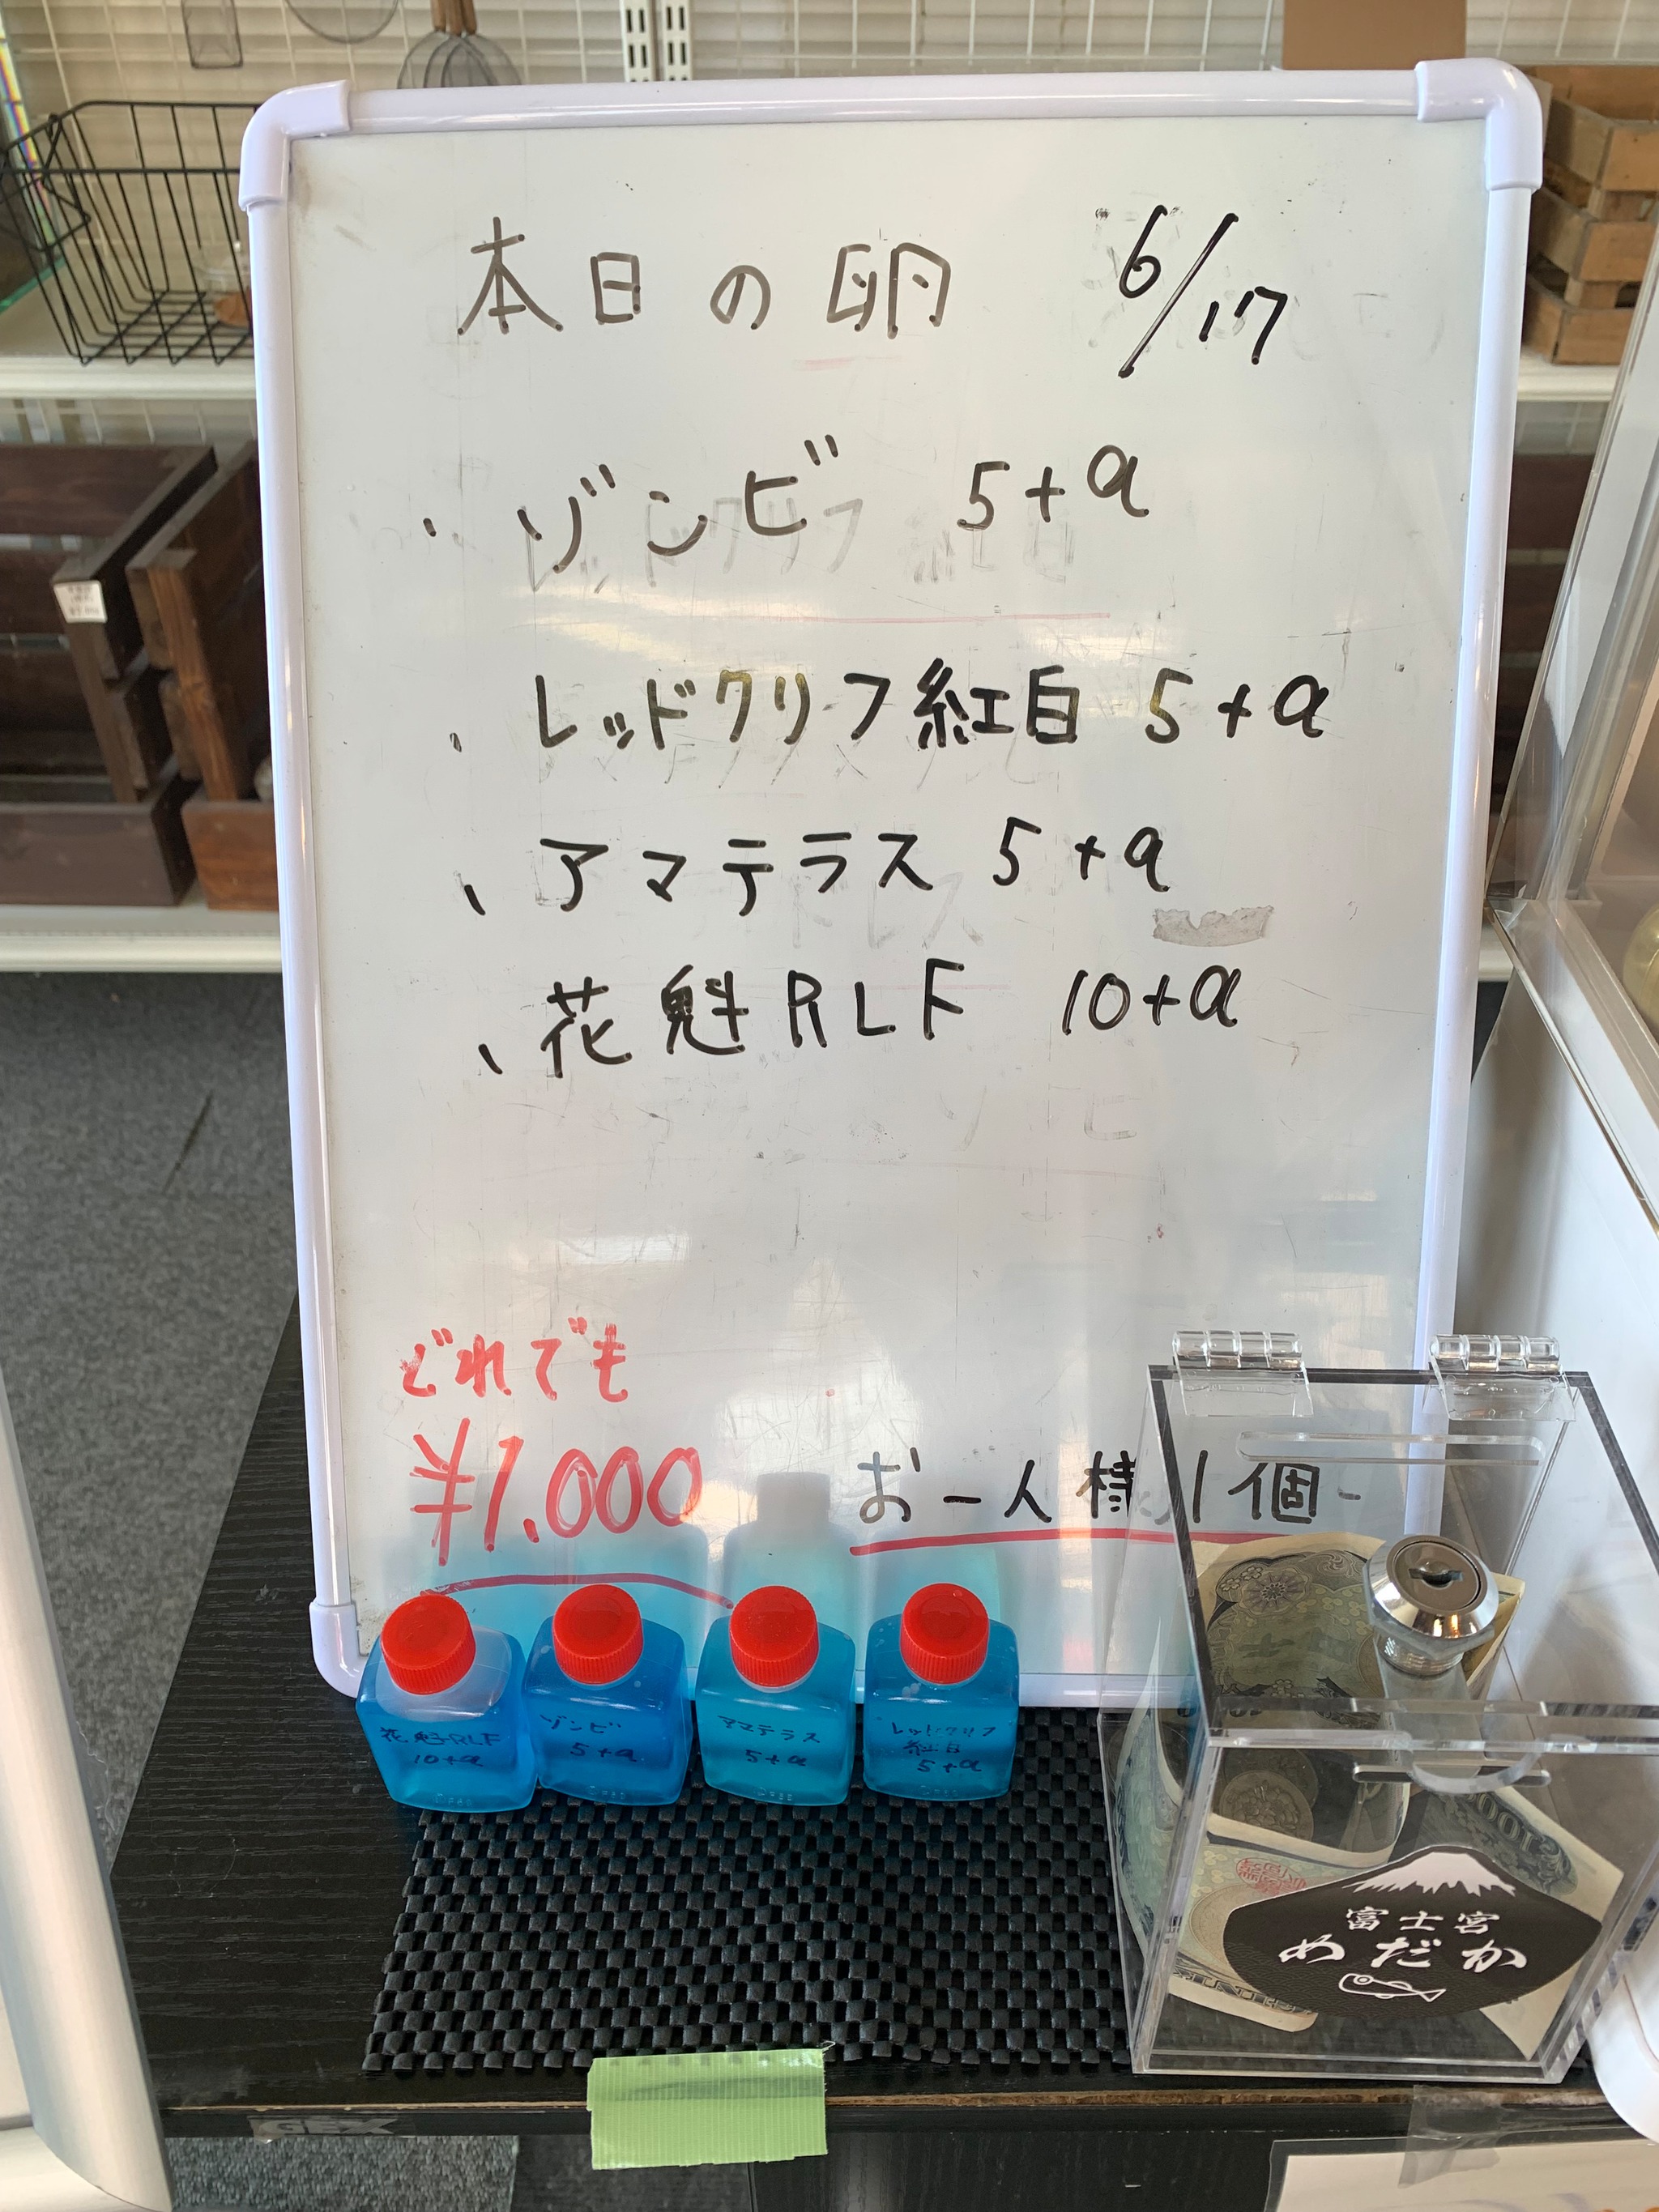 本日の卵 6/17
・ゾンビ 5+α
・レッドクリフ紅白 5+α
・アマテラス 5+α
・花魁RLF 10+α
どれでも
¥1.000
お一人様1個
花魁RLF
10+α
ゾンビ
5+α
アマテラス
5+α
レッドクリフ
紅白
5+α
富士宮
めだか
GEX